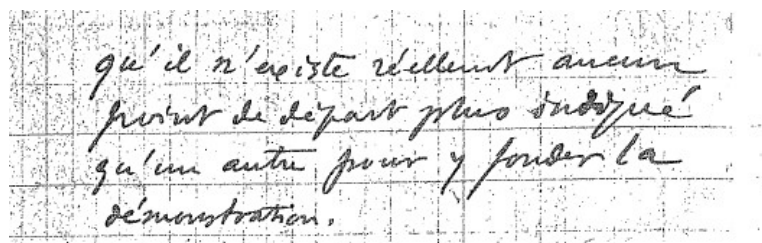 qu'il n'existe réellemt aucun
point de départ plus indiqué
qu'un autre pour y fonder la
démonstration.